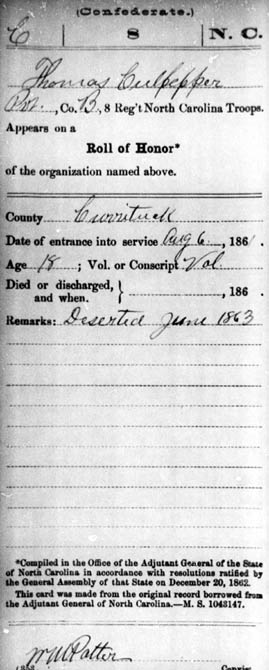 (Confederate.)
C 8 N. C.
Thomas Culpepper
Pvt., Co. B, 8 Reg't North Carolina Troops.
Appears on a
Roll of Honor*
of the organization named above.
County Currituck
Date of entrance into service Aug 6, 1861.
Age 18; Vol. or Conscript Vol
Died or discharged, and when. } , 186 .
Remarks: Deserted June 1863
*Compiled in the Office of the Adjutant General of the State
of North Carolina in accordance with resolutions ratified by
the General Assembly of that State on December 20, 1862.
This card was made from the original record borrowed from
the Adjutant General of North Carolina.—M. S. 1043147.
Wm Patter
Copyist.